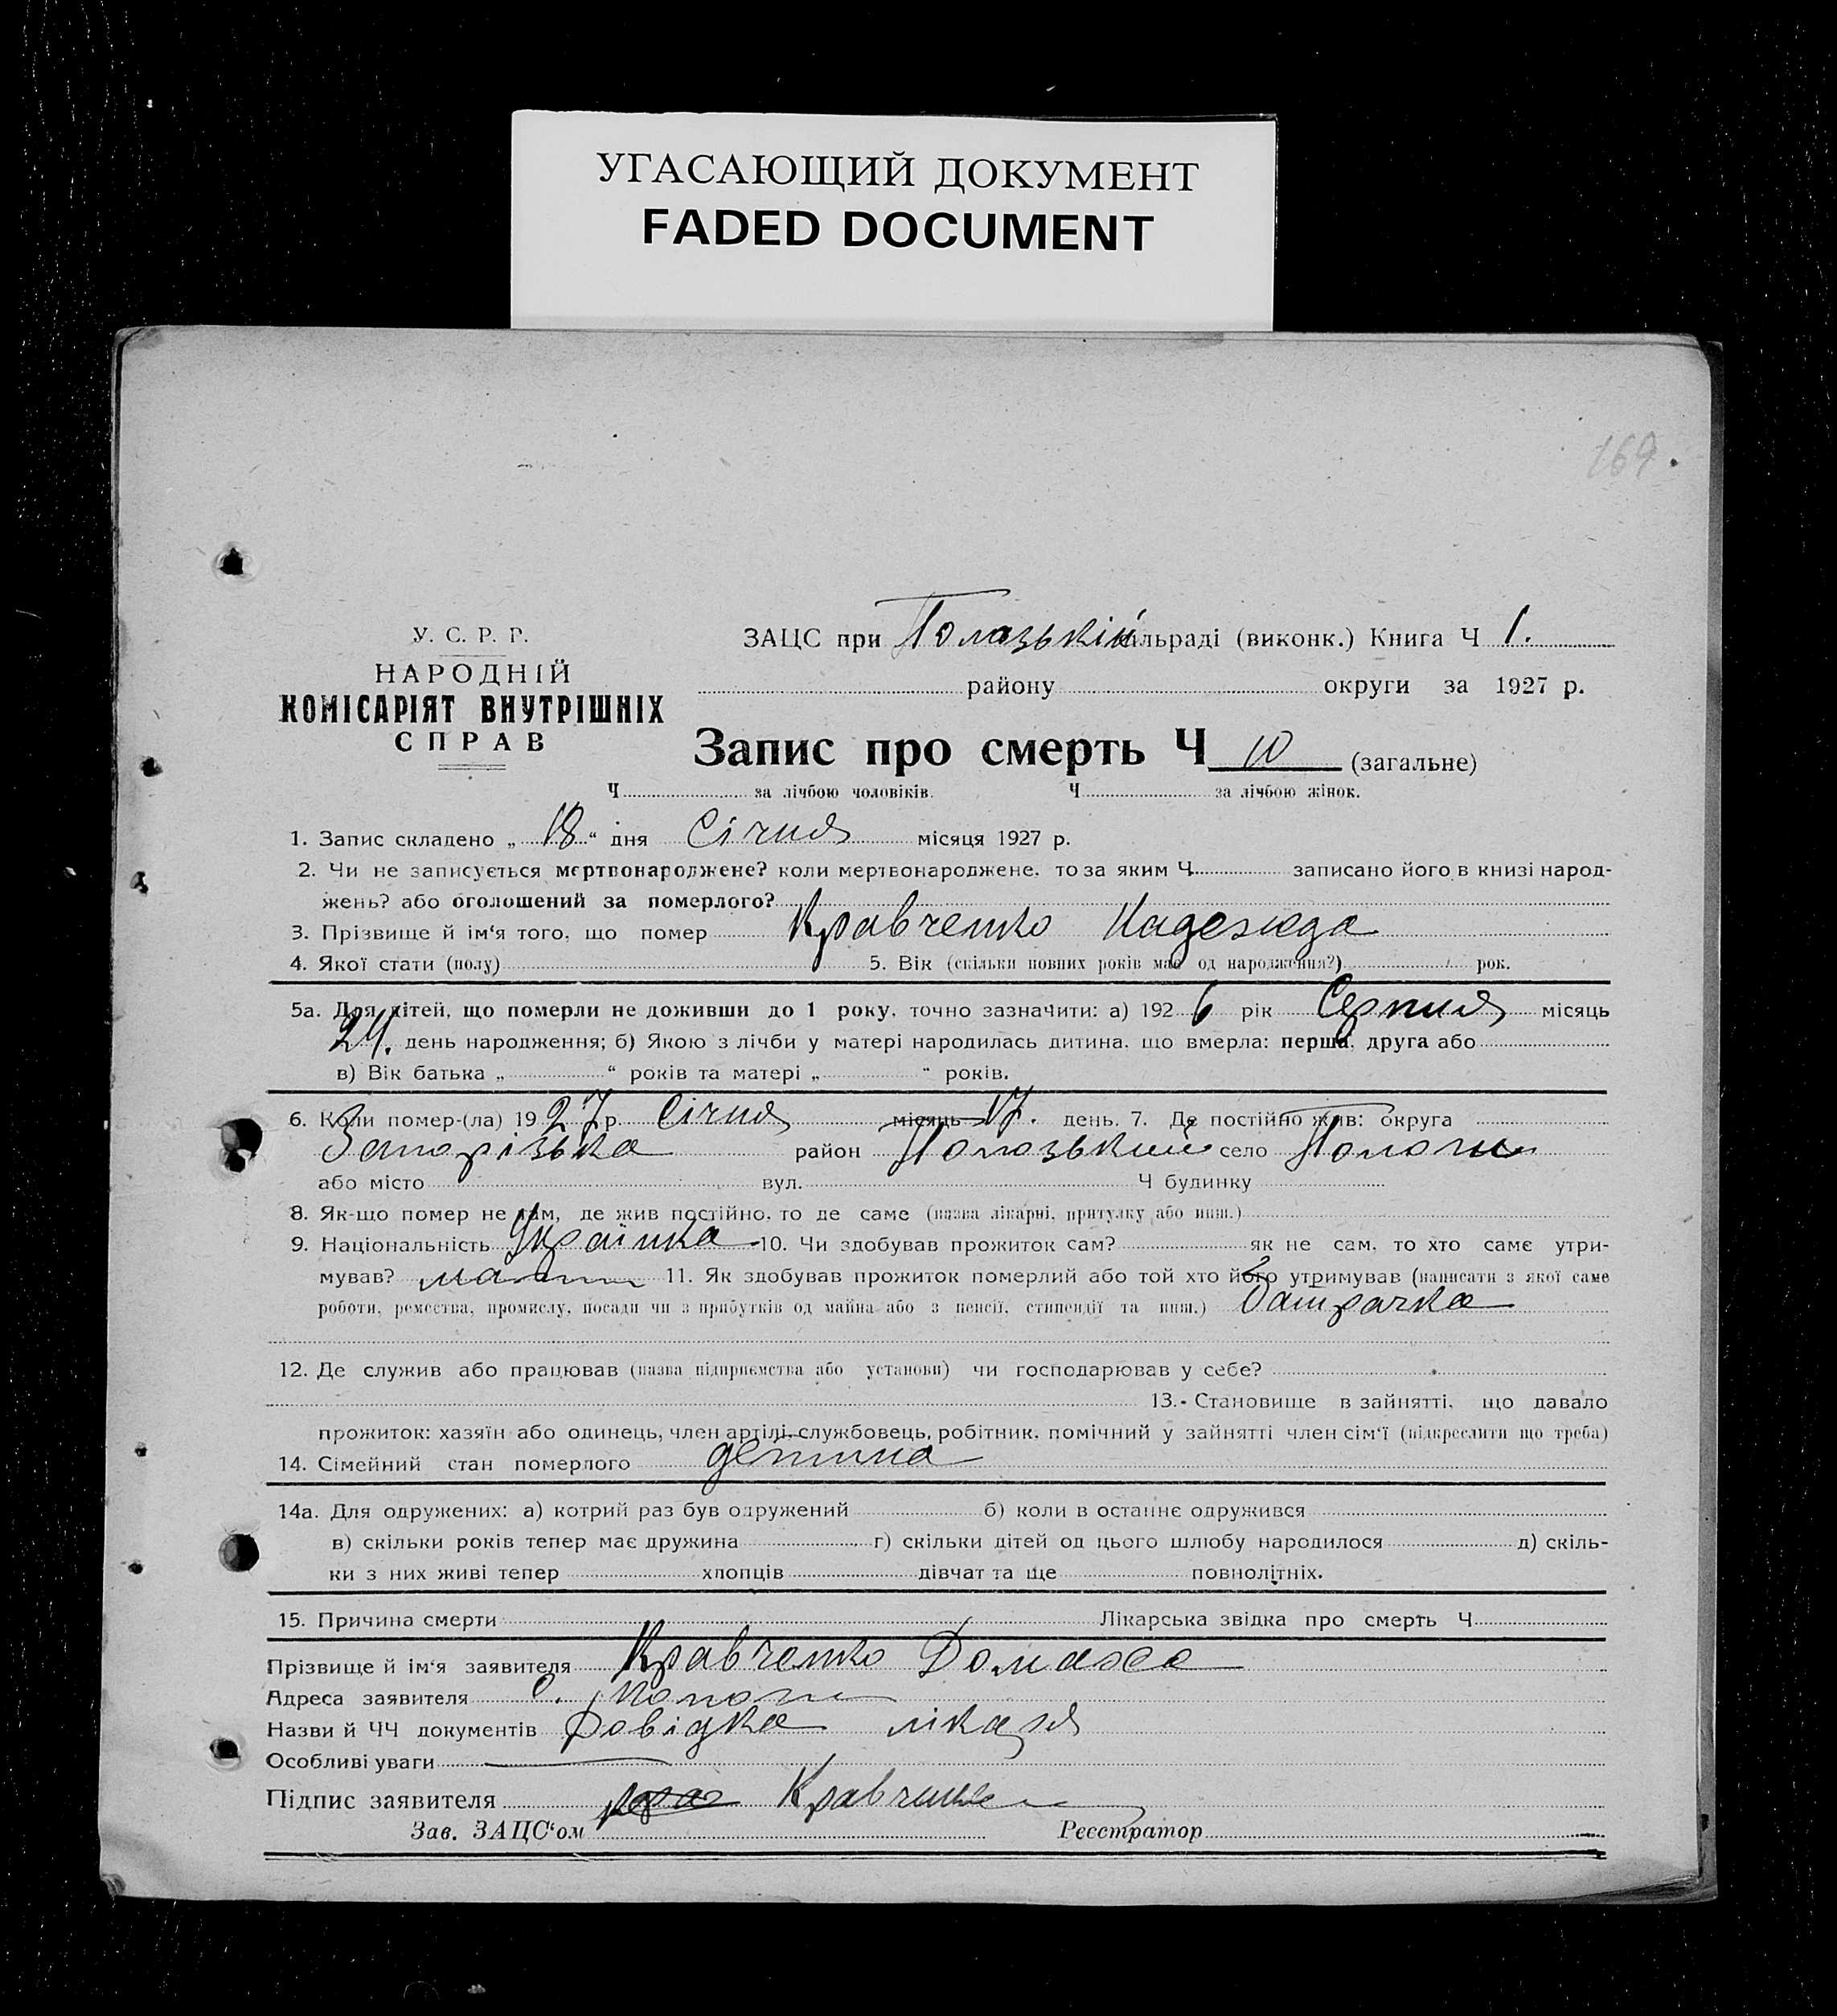 УГАСАЮЩИЙ ДОКУМЕНТ
FADED DOCUMENT
169.
У. С. Р. Р.
НАРОДНІЙ
КОМІСАРІЯТ ВНУТРІШНІХ
СПРАВ
ЗАЦС при Пологській сільраді (виконк.) Книга Ч 1.
району округи за 1927 р.
Запис про смерть Ч 10 (загальне)
Ч за лічбою чоловіків. Ч за лічбою жінок.
1. Запис складено „ 18 “ дня Січня місяця 1927 р.
2. Чи не записується мертвонароджене? коли мертвонароджене, то за яким Ч записано його в книзі народ-
жень? або оголошений за померлого?
3. Прізвище й ім‘я того, що помер Кравченко Надежда
4. Якої стати (полу) 5. Вік (скільки повних років мав од народження?) рок.
5а. Для дітей, що померли не доживши до 1 року, точно зазначити: а) 192 6 рік Серпня місяць
24. день народження; б) Якою з лічби у матері народилась дитина, що вмерла: перша, друга або
в) Вік батька „ “ років та матері „ “ років.
6. Коли помер-(ла) 19 27 р. Січня місяць 17. день. 7. Де постійно жив: округа
Запорізька район Полозький село Пологи
або місто вул. Ч будинку
8. Як-що помер не там, де жив постійно, то де саме (назва лікарні, притулку або инш.)
9. Національність Українка 10. Чи здобував прожиток сам? як не сам, то хто саме утри-
мував? мати 11. Як здобував прожиток померлий або той хто його утримував (написати з якої саме
роботи, ремества, промислу, посади чи з прибутків од майна або з пенсії, стипендії та инш.) батрачка
12. Де служив або працював (назва підприємства або установи) чи господарював у себе?
13. Становище в зайнятті, що давало
прожиток: хазяїн або одинець, член артілі, службовець, робітник, помічний у зайнятті член сім‘ї (підкреслити що треба)
14. Сімейний стан померлого детина
14а. Для одружених: а) котрий раз був одружений б) коли в останнє одружився
в) скільки років тепер має дружина г) скільки дітей од цього шлюбу народилося д) скіль-
ки з них живі тепер хлопців дівчат та ще повнолітніх.
15. Причина смерти Лікарська звідка про смерть Ч
Прізвище й ім‘я заявителя Кравченко Домаха
Адреса заявителя с. Пологи
Назви й ЧЧ документів Довідка лікаря
Особливі уваги
Підпис заявителя Кравченко
Зав. ЗАЦС‘ом Реєстратор